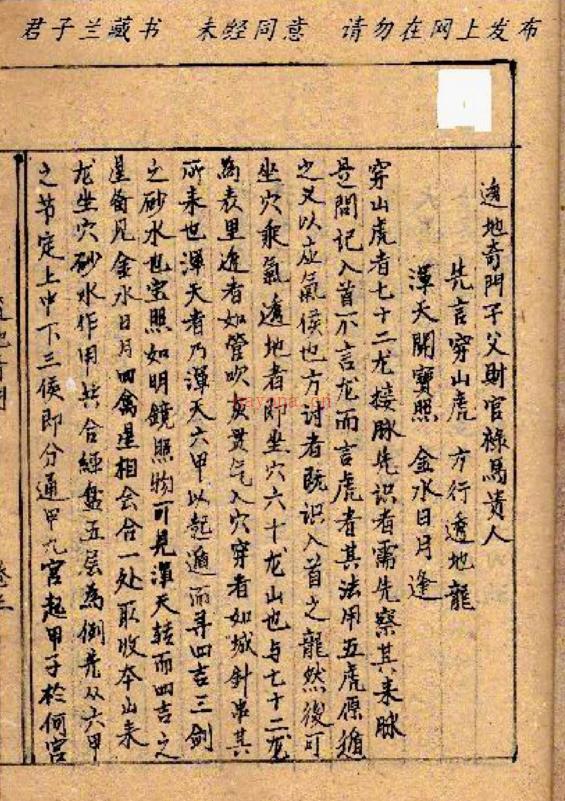 君子兰藏书 未经同意 请勿在网上发布
透地奇門子父財官祿馬貴人
先言穿山虎 方行透地龍
渾天開寶照 金水日月逢
穿山虎者七十二龙接脉先识者需先察其来脉
是問記入首不言龙而言虎者其法用五虎原遁
之义以应氣候也方討者既识入首之龍然後可
坐穴乘氣透地者即坐穴六十龙山也与七十二龙
為表里透者如管吹灰貫气入穴穿者如城針串其
所来也渾天者乃渾天六甲以起遁而寻四吉三剑
之砂水也宝照如明鏡照物可見渾天转而四吉之
星备見金水日月四禽星相会合一处取收本山来
龙坐穴砂水作用共合經盘五层為例先从六甲
之节定上中下三侯即分通甲九宫起甲子於何宫
kayana.cn
透地奇門
卷三